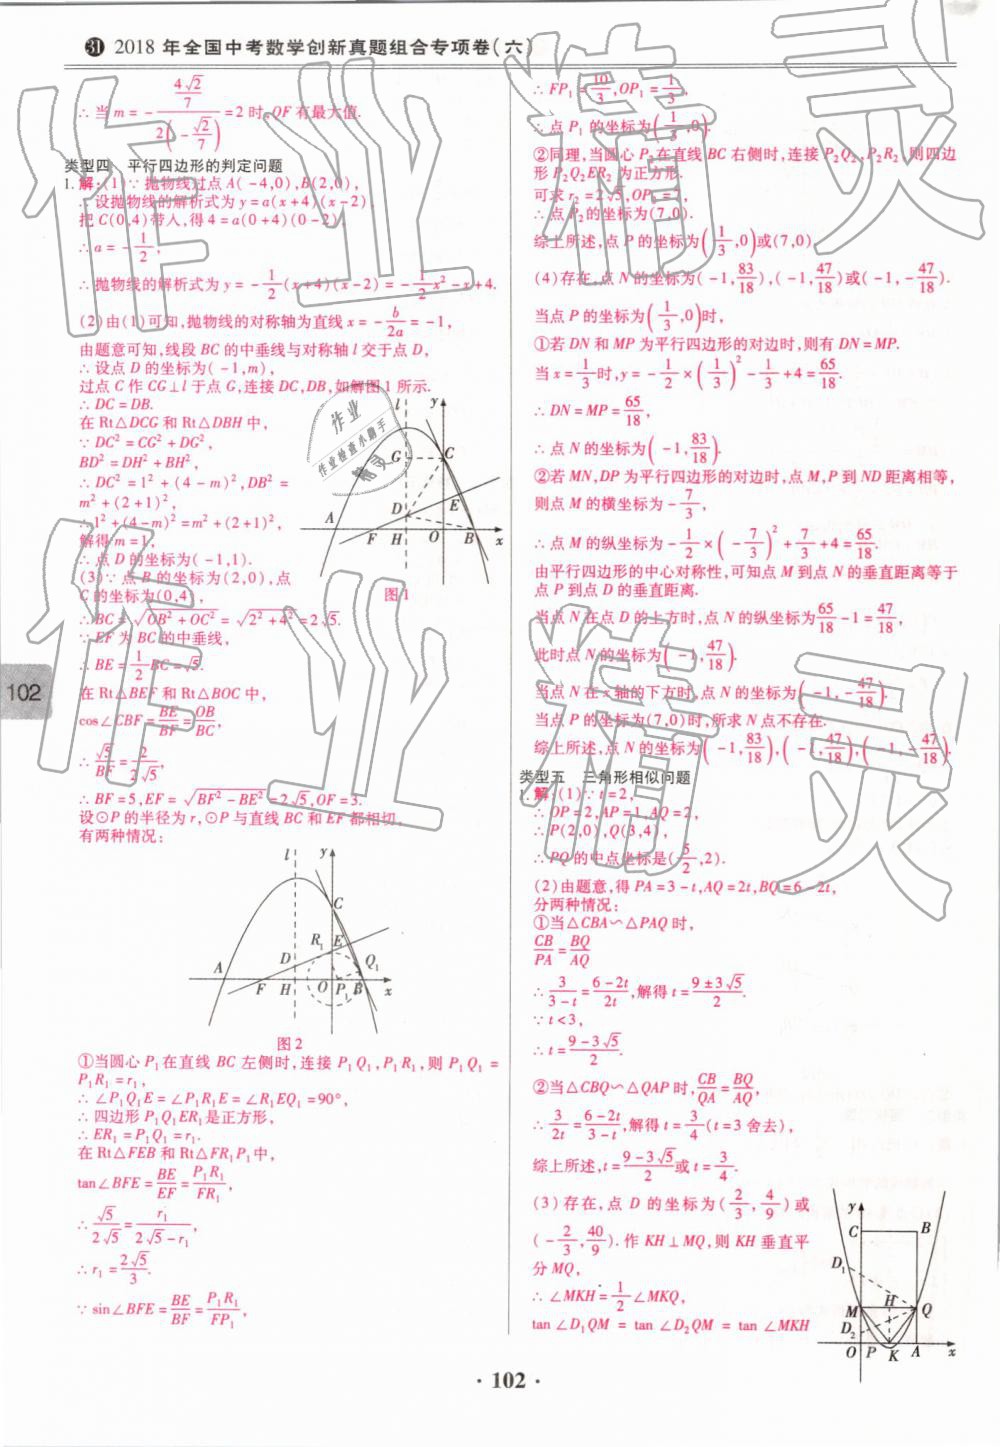 ㉛ 2018年全国中考数学创新真题组合专项卷(六)
∴当m=-(4√2/7)/(2(-√2/7))=2时,QF有最大值.
类型四 平行四边形的判定问题
1.解:(1)∵抛物线过点A(-4,0),B(2,0),
∴设抛物线的解析式为y=a(x+4)(x-2).
把C(0,4)带入,得4=a(0+4)(0-2),
∴a=-1/2,
∴抛物线的解析式为y=-1/2(x+4)(x-2)=-1/2x²-x+4.
(2)由(1)可知,抛物线的对称轴为直线x=-b/2a=-1,
由题意可知,线段BC的中垂线与对称轴l交于点D,
∴设点D的坐标为(-1,m),
过点C作CG⊥l于点G,连接DC,DB,如解图1所示.
∴DC=DB.
在Rt△DCG和Rt△DBH中,
∵DC²=CG²+DG²,
BD²=DH²+BH²,
∴DC²=1²+(4-m)²,DB²=
m²+(2+1)²,
∴1²+(4-m)²=m²+(2+1)²,
解得m=1,
∴点D的坐标为(-1,1).
(3)∵点B的坐标为(2,0),点
C的坐标为(0,4),
∴BC=√(OB²+OC²)=√(2²+4²)=2√5.
∵EF为BC的中垂线,
∴BE=1/2BC=√5.
在Rt△BEF和Rt△BOC中,
cos∠CBF=BE/BF=OB/BC,
∴√5/BF=2/2√5,
∴BF=5,EF=√(BF²-BE²)=2√5,OF=3.
设⊙P的半径为r,⊙P与直线BC和EF都相切.
有两种情况:
l y G C D E A F H O B x
图1
l y C R₁ E D Q₁ A F H O P₁ B x
图2
①当圆心P₁在直线BC左侧时,连接P₁Q₁,P₁R₁,则P₁Q₁=
P₁R₁=r₁,
∴∠P₁Q₁E=∠P₁R₁E=∠R₁EQ₁=90°,
∴四边形P₁Q₁ER₁是正方形,
∴ER₁=P₁Q₁=r₁.
在Rt△FEB和Rt△FR₁P₁中,
tan∠BFE=BE/EF=P₁R₁/FR₁,
∴√5/2√5=r₁/(2√5-r₁),
∴r₁=2√5/3.
∵sin∠BFE=BE/BF=P₁R₁/FP₁,
∴FP₁=10/3,OP₁=1/3,
∴点P₁的坐标为(1/3,0).
②同理,当圆心P₂在直线BC右侧时,连接P₂Q₂,P₂R₂,则四边
形P₂Q₂ER₂为正方形.
可求r₂=2√5,OP₂=7,
∴点P₂的坐标为(7,0).
综上所述,点P的坐标为(1/3,0)或(7,0).
(4)存在,点N的坐标为(-1,83/18),(-1,47/18)或(-1,-47/18).
当点P的坐标为(1/3,0)时,
①若DN和MP为平行四边形的对边时,则有DN=MP.
当x=1/3时,y=-1/2×(1/3)²-1/3+4=65/18.
∴DN=MP=65/18,
∴点N的坐标为(-1,83/18).
②若MN,DP为平行四边形的对边时,点M,P到ND距离相等,
则点M的横坐标为-7/3,
∴点M的纵坐标为-1/2×(-7/3)²+7/3+4=65/18.
由平行四边形的中心对称性,可知点M到点N的垂直距离等于
点P到点D的垂直距离.
当点N在点D的上方时,点N的纵坐标为65/18-1=47/18,
此时点N的坐标为(-1,47/18).
当点N在x轴的下方时,点N的坐标为(-1,-47/18).
当点P的坐标为(7,0)时,所求N点不存在.
综上所述,点N的坐标为(-1,83/18),(-1,47/18),(-1,-47/18).
类型五 三角形相似问题
1.解:(1)∵t=2,
∴OP=2,AP=1,AQ=2,
∴P(2,0),Q(3,4),
∴PQ的中点坐标是(5/2,2).
(2)由题意,得PA=3-t,AQ=2t,BQ=6-2t,
分两种情况:
①当△CBA∽△PAQ时,
CB/PA=BQ/AQ
∴3/(3-t)=(6-2t)/2t,解得t=(9±3√5)/2.
∵t<3,
∴t=(9-3√5)/2.
②当△CBQ∽△QAP时,CB/QA=BQ/AQ,
∴3/2t=(6-2t)/(3-t),解得t=3/4(t=3舍去),
综上所述,t=(9-3√5)/2或t=3/4.
(3)存在,点D的坐标为(2/3,4/9)或
(-2/3,40/9).作KH⊥MQ,则KH垂直平
分MQ,
∴∠MKH=1/2∠MKQ,
tan∠D₁QM=tan∠D₂QM=tan∠MKH
y C B D₁ H M Q D₂ O P K A x
102
·102·
作业精灵
作业
作业检查小助手
精灵
作业精灵